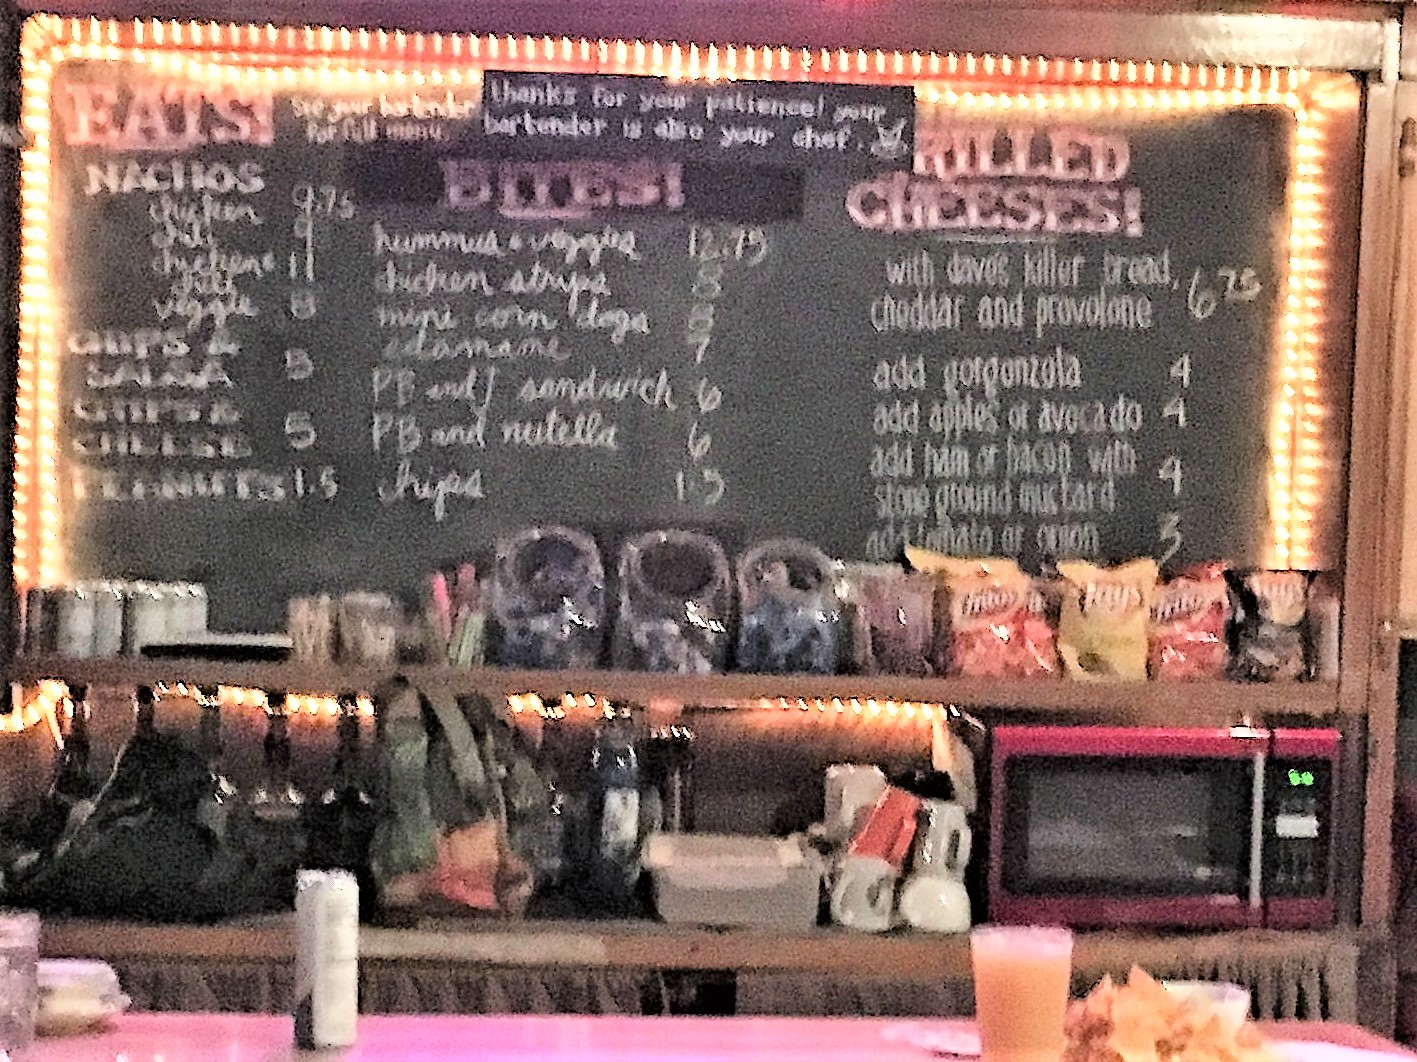 EATS!
See your bartender
for full menu
thanks for your patience! your
bartender is also your chef.
NACHOS
chicken 9.75
chili 9
chicken & 11
chili
veggie 8
CHIPS &
SALSA 5
CHIPS &
CHEESE 5
PEANUTS 1.5
BITES!
hummus & veggies 12.75
chicken strips 8
mini corn dogs 8
edamame 7
PB and J sandwich 6
PB and nutella 6
chips 1.5
GRILLED
CHEESES!
with daves killer bread, 6.75
cheddar and provolone
add gorgonzola 4
add apples or avocado 4
add ham or bacon with
stone ground mustard 4
add tomato or onion 3
Fritos
Lays
Fritos